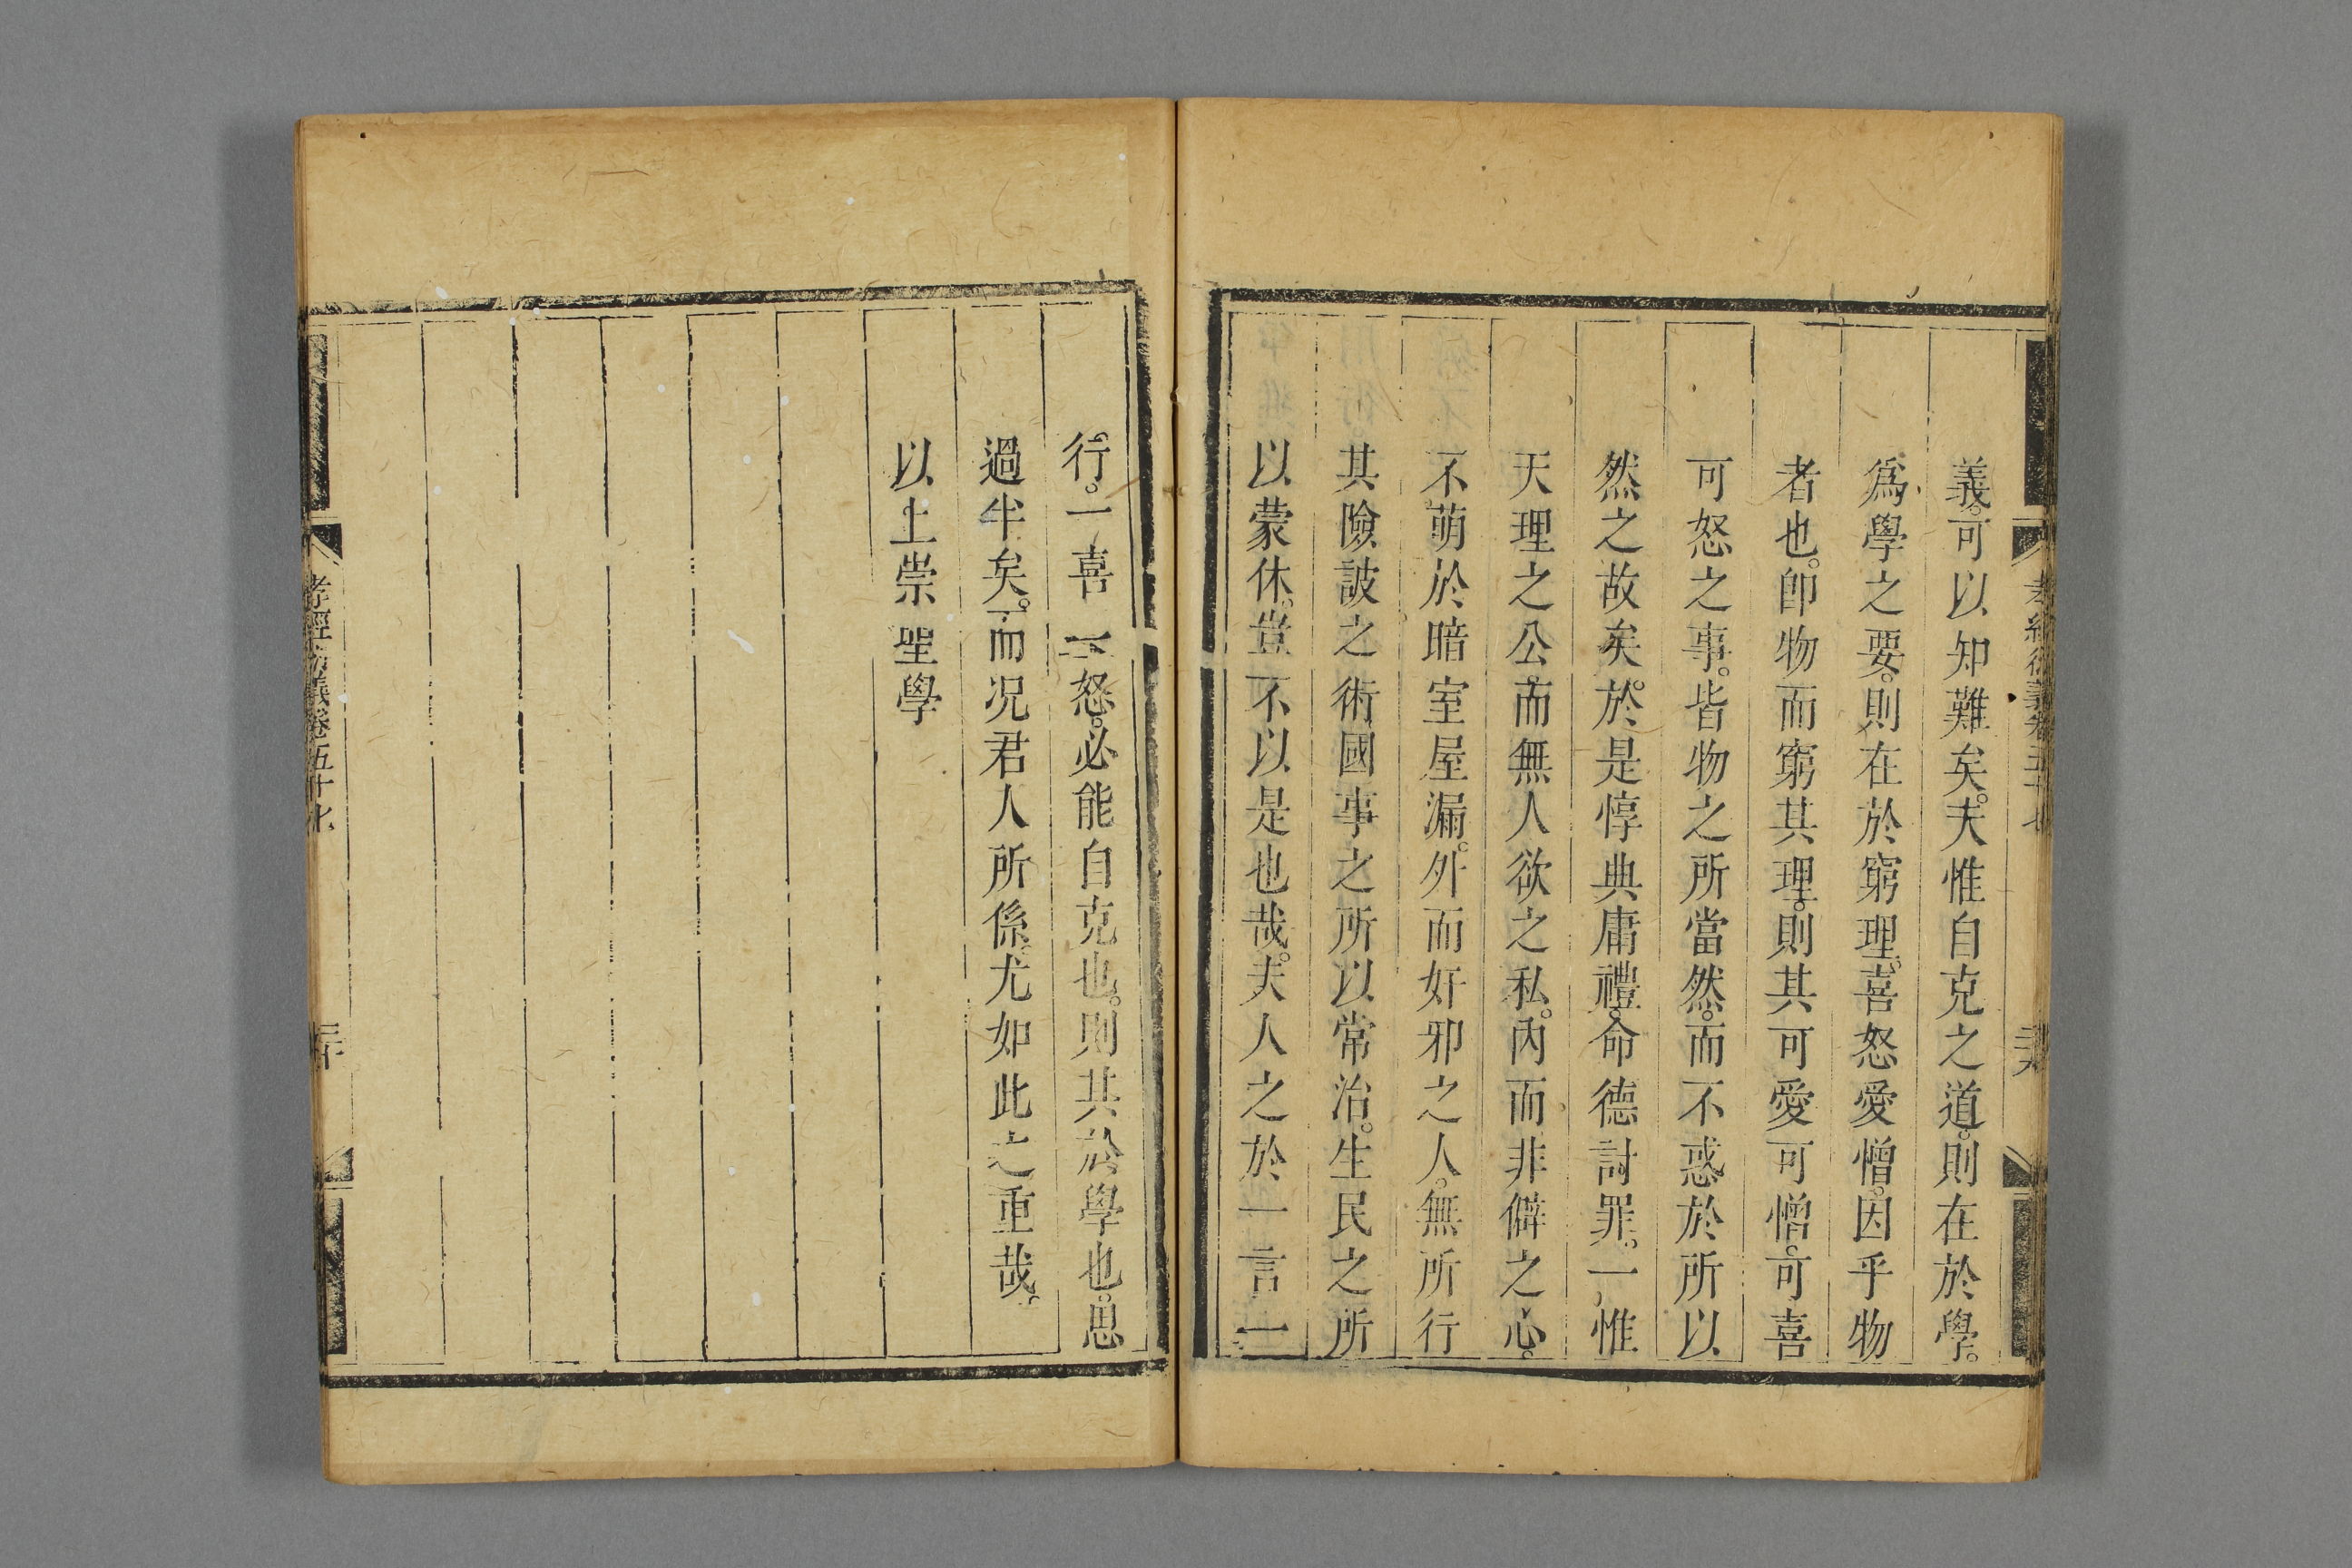 義。可以知難矣。夫惟自克之道。則在於學。
爲學之要。則在於窮理。喜怒愛憎。因乎物
者也。卽物而窮其理。則其可愛可憎。可喜
可怒之事。皆物之所當然。而不惑於所以
然之故矣。於是惇典庸禮。命德討罪。一惟
天理之公。而無人欲之私。內而非僻之心。
不萌於暗室屋漏。外而奸邪之人。無所行
其險詖之術。國事之所以常治。生民之所
以蒙休。豈不以是也哉。夫人之於一言一
行。一喜一怒。必能自克也。則其於學也。思
過半矣。而况君人所係。尤如此之重哉。
以上崇聖學
孝經衍義卷五十七